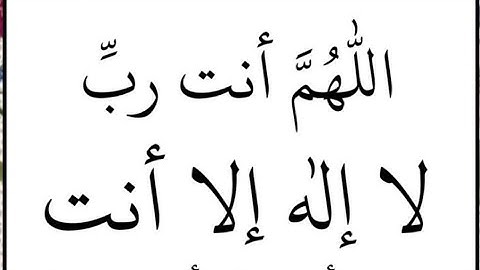 اللّٰهُمَّ أنت ربِّ
لا إلٰه إلا أنت